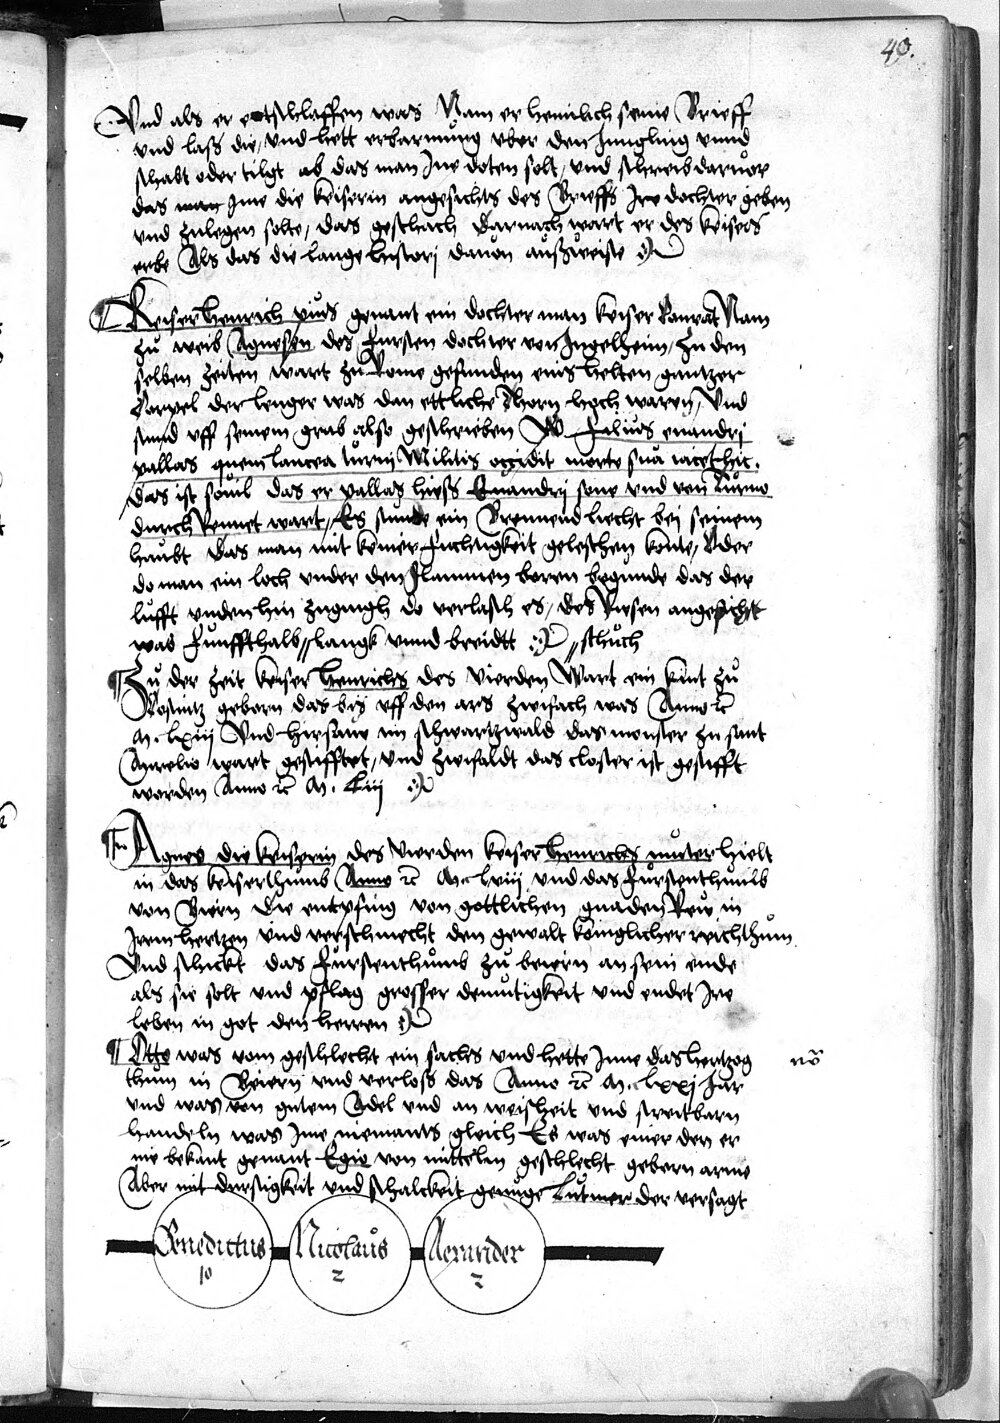 40.
Und als er entschlaffen was Nam er heimlich seine Brieff
und lass die, und hett erbarmung uber den Jungling unnd
schabt oder tilgt ab das man Ine doten solt, und schreib daruor
das man Jme die keiserin angesichts des Brieffs Ire dochter geben
und zulegen solte, das geschach darnach wart er des keisers
erbe Als das die lange histori dauon außzweiste
Keiser Henrich pius genant ein dochter man keiser Conrat Nam
zu weib Agnesen des fursten dochter von Ingelheim, Zu den
selben zeiten wart zu Rome gefunden eins helten gantzer
Corpel der lenger was dan ettliche thorn hoch waren, Und
stund uff seinem grab also geschrieben Filius euandri
pallas quem lancea turni Militis occidit morte sua iacet hic.
das ist souil das er pallas hiess Euandrij sone und von Turno
durch Rennet wart, Es stunde ein Brennend liecht bei seinem
haubt das man mit keiner fuchtigkeit geleschen konte, Oder
do man ein loch under den flammen boren begunde das der
lufft undenhin zugingh do verlasch es, des Riesen angesicht
was funffthalb langk unnd breidt schuch
Zu der zeit keiser Henrichs des vierden Wart ein kint zu
Costnitz geborn das bis uff den ars zwifach was Anno rc
M. lxiij Und hirsaue im schwartzwald das monster zu sant
Aurelio wart gestifftet, und zwifaldt das closter ist gestifft
worden Anno rc M. Liij
Agnes die keiserin des vierden keiser Henrichs muter hielt
in das keiserthumb Anno rc M. lviij und das furstenthumb
von Beirn die entpfing von gottlichen gnaden Reu in
Irem hertzen und verschmecht den gewalt koniglicher reichthum
Und schickt das furstenthumb zu beiern an sein ende
als sie solt und pflag grosser demutigkeit und endet Ire
leben in got den herren
Otto was vom geschlecht ein sachs und hette Inne das hertzog
no
thum in Beiern und verloss das Anno rc M. lxxj Jar
und was von gutem Adel und an weisheit und streitbarn
handeln was Ime niemants gleich Es was einer den er
nie bekant genant Egio von mitteln geschlecht geborn arme
Aber mit dursigkeit und schalckeit genuge der versagt
Benedictus Nicolaus Alexander
10 2 2